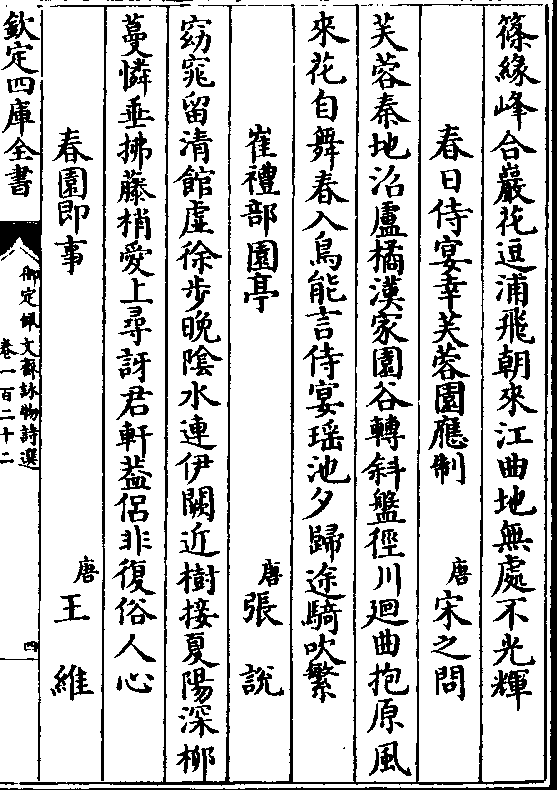 篠緣峰合巖花逗浦飛朝來江曲地無處不光輝
春日侍宴幸芙蓉園應制 唐 宋之問
芙蓉秦地沼盧橘漢家園谷轉斜盤徑川迴曲抱原風
來花自舞春入鳥能言侍宴瑶池夕歸途騎吹繁
崔禮部園亭 唐 張說
窈窕留清館虚徐步晚陰水連伊闕近樹接夏陽深柳
蔓憐垂拂藤梢愛上尋訝君軒葢侣非復俗人心
春園即事 唐 王維
欽定四庫全書 御定佩文齋詠物詩選 卷一百二十二 四